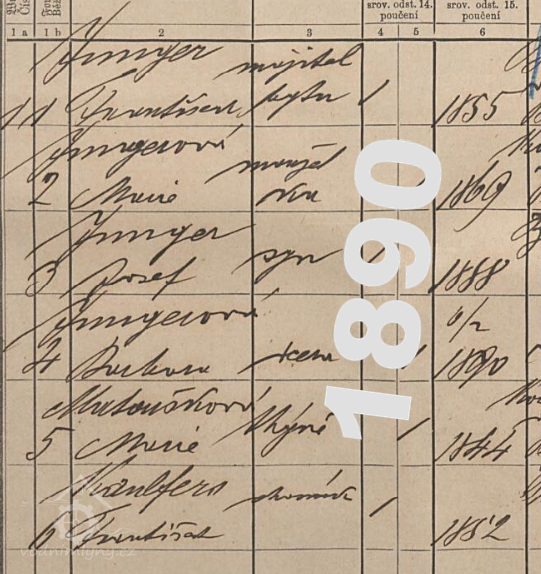 srov. odst. 14. srov. odst. 15.
poučení poučení
1 a 1 b 2 3 4 5 6
Junger majitel
1 1 František bytu / 1855
Jungerová manžel
2 Marie ka 1869
Junger
3 Josef syn / 1888
Jungerová 6/2
4 Barbora dcera / 1890
Matoušková
5 Marie / 1844
6 František / 1882
1890
vodnimlyny.cz